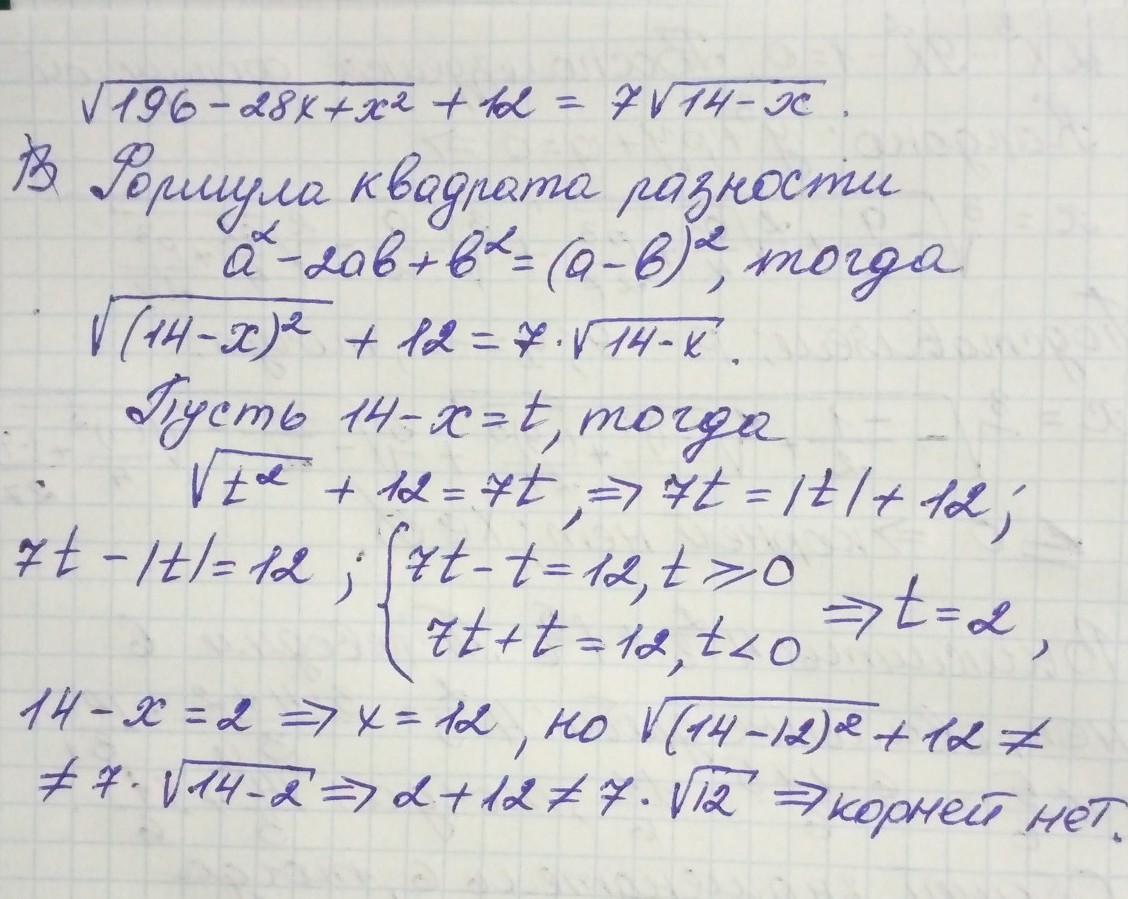 √(196 - 28x + x²) + 12 = 7√(14 - x).
Формула квадрата разности
a² - 2ab + b² = (a - b)², тогда
√((14 - x)²) + 12 = 7·√(14 - x).
Пусть 14 - x = t, тогда
√(t²) + 12 = 7t, ⇒ 7t = |t| + 12;
7t - |t| = 12; { 7t - t = 12, t ⩾ 0
7t + t = 12, t < 0 ⇒ t = 2,
14 - x = 2 ⇒ x = 12, но √((14 - 12)²) + 12 ≠
≠ 7·√(14 - 2) ⇒ 2 + 12 ≠ 7·√12 ⇒ корней нет.